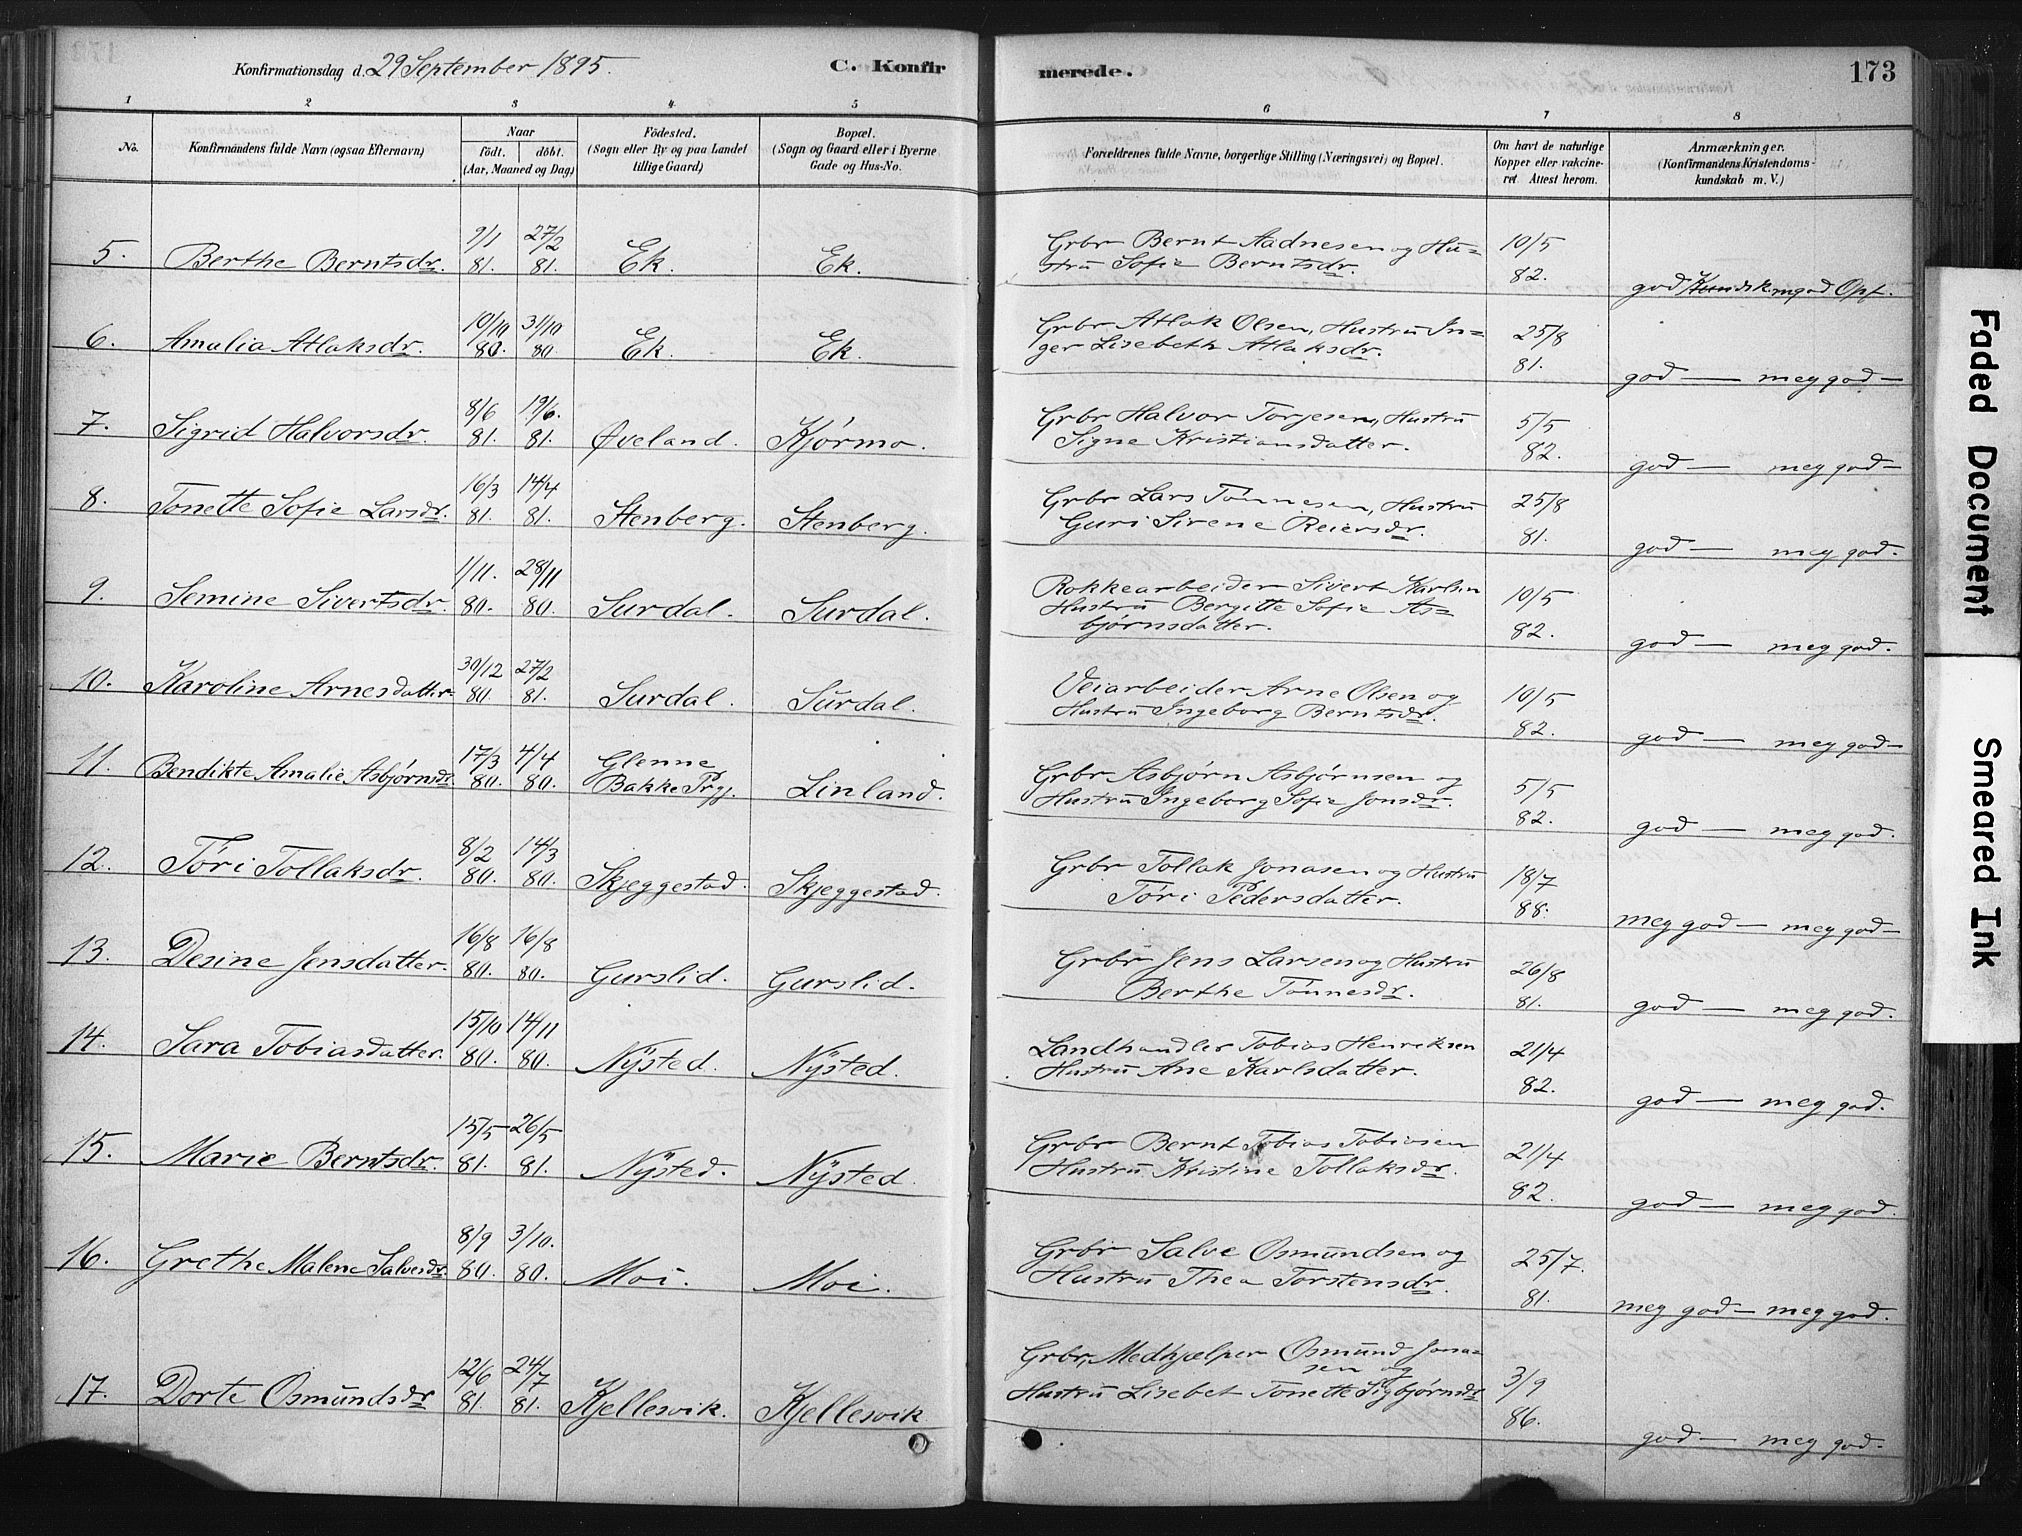 Konfirmationsdag d. 29 September 1895. C. Konfirmerede. 173
1 2 3 4 5 6 7 8
No. Konfirmandens fulde Navn (ogsaa Efternavn) Naar födt. döbt. (Aar, Maaned og Dag) Födested. (Sogn eller By og paa Landet tillige Gaard) Bopæl. (Sogn og Gaard eller i Byerne Gade og Hus-No. Forældrenes fulde Navne, borgerlige Stilling (Næringsvei) og Bopæl. Om havt de naturlige Kopper eller vakcineret Attest herom. Anmærkninger. (Konfirmandens Kristendomskundskab m. V.)
5. Berthe Berntsdr. 9/1 81. 27/2 81. Ek. Ek. Grbr Bernt Aadnesen og Hu=
stru Sofie Berntsdr. 10/5 82. god Kundsk. mgod Opf.
6. Amalia Atlaksdr. 10/10 80. 31/10 80. Ek. Ek. Grbr Atlak Olsen, Hustru In=
ger Lisebeth Atlaksdr. 25/8 81. god — meg god —
7. Sigrid Halvorsdr. 8/6 81. 19/6. 81. Øveland. Kjørmo. Grbr Halvor Torjesen, Hustru
Signe Kristiansdatter. 5/5 82. god — meg god —
8. Tonette Sofie Larsdr. 16/3 81. 14/4 81. Stenberg. Stenberg. Grbr Lars Tønnesen, Hustru
Guri Sirene Reiersdr. 25/8 81. god — meg god.
9. Semine Sivertsdr. 1/11. 80. 28/11 80. Surdal. Surdal. Rokkearbeider Sivert Karlsen
Hustru Bergitte Sofie As=
bjørnsdatter. 10/5 82. god — meg god.
10. Karoline Arnesdatter. 30/12 80. 27/2 81. Surdal. Surdal. Veiarbeider Arne Olsen og
Hustru Ingeborg Berntsdr. 10/5 82. god — meg god —
11. Bendikte Amalie Asbjørnsdr. 17/3 80. 4/4 80. Glenne
Bakke Prgj. Linland. Grbr Asbjørn Asbjørnsen og
Hustru Ingeborg Sofie Jonsdr. 5/5 82. god — meg god.
12. Tøri Tollaksdr. 8/2 80. 14/3 80. Skjeggestad. Skjeggestad. Grbr Tollak Jonasen og Hustru
Tøri Pedersdatter. 18/7 88. meg god — meg god —
13. Desine Jensdatter. 16/8 80. 16/8 80. Gurslid. Gurslid. Grbr Jens Larsen og Hustru
Berthe Tønnesdr. 26/8 81. god — meg god.
14. Sara Tobiasdatter. 15/10 80. 14/11 80. Nysted. Nysted. Landhandler Tobias Henriksen
Hustru Ane Karlsdatter. 21/4 82. god — meg god.
15. Marie Berntsdr. 15/5 81. 26/5 81. Nysted. Nysted. Grbr Bernt Tobias Tobiasen
Hustru Kristine Tollaksdr. 21/4 82. god — meg god.
16. Grethe Malene Salvesdr. 8/9 80. 3/10. 80. Moi. Moi. Grbr Salve Osmundsen og
Hustru Thea Torstensdr. 25/7. 81. meg god — meg god.
17. Dorte Osmundsdr 12/6 81. 24/7 81. Kjellesvik. Kjellesvik Grbr, Medhjælper Osmund Jona=
sen og
Hustru Lisebet Tonette Sigbjørnsdr 3/9 86. god — meg god.
Faded Document
Smeared Ink